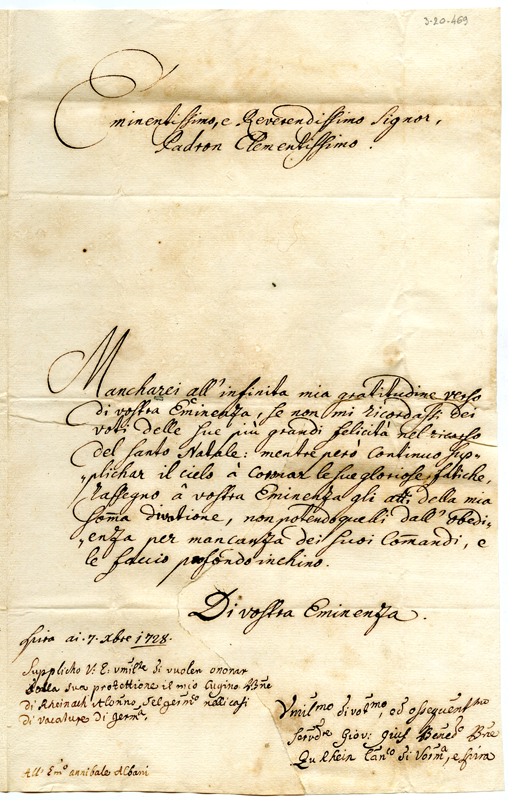 3-20-469
Eminentissimo, e Reverendissimo Signor,
Padron Clementissimo.
Mancharei all' infinita mia gratitudine verso
di vostra Em̃enza, se non mi ricordassi dei
voti delle sue più grandi felicità nel ricorso
del santo Natale: mentre però continuo sup-
-plichar il cielo à le sue gloriose fatiche,
Rassegno à vostra Eminenza gli atti della mia
som̃a divotione, non potendo quelli dall' obedi-
-enza per mancanza dei suoi Com̃andi, e
le faccio profondo inchino.
Di vostra Eminenza.
Spira ai. 7. Xbre 1728.
Supplicho V: E: di vuoler onorar
della sua protettione il mio Cugino
di Rheinach
di vacature di
All' Em̃o annibale Albani
Giov: Gius:
e Spira